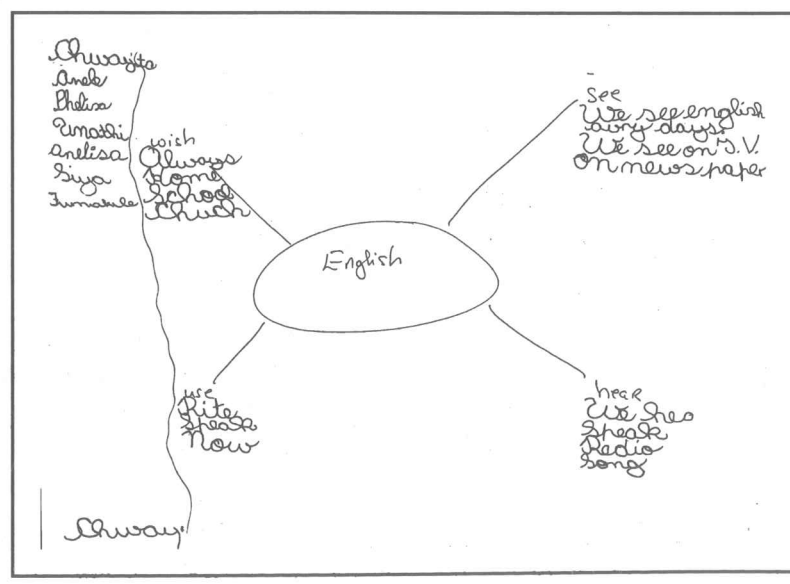 Chwayita
Anele
Phelisa
Unathi
Anelisa
Siya
wish
Always
Home
School
Chuch
English
see
We see english
avry days.
We see on T.V.
on news paper
use
Rite
Speak
Now
hear
We hea
Speak
Redio
Song
Chway